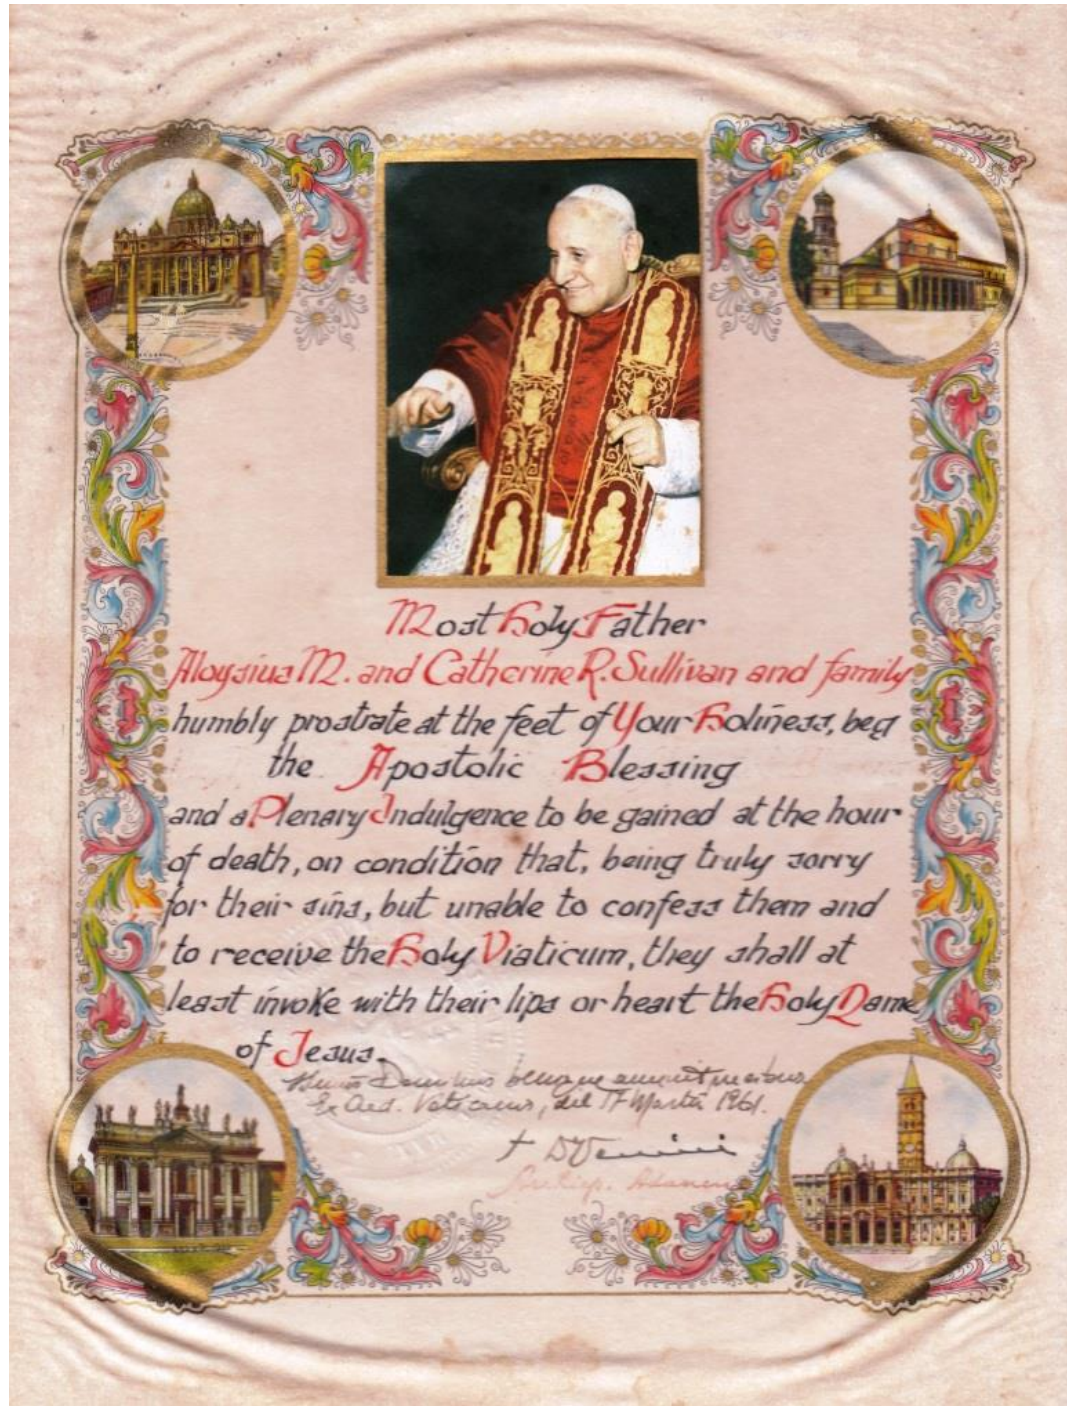 Most Holy Father
Aloysius M. and Catherine R. Sullivan and family
humbly prostrate at the feet of Your Holiness, beg
the Apostolic Blessing
and a Plenary Indulgence to be gained at the hour
of death, on condition that, being truly sorry
for their sins, but unable to confess them and
to receive the Holy Viaticum, they shall at
least invoke with their lips or heart the Holy Name
of Jesus.
Dominus benigne annuit precibus
Ex Aed. Vaticanis, die 17 Martii 1961.
† D Venini
Archiep. Adanen